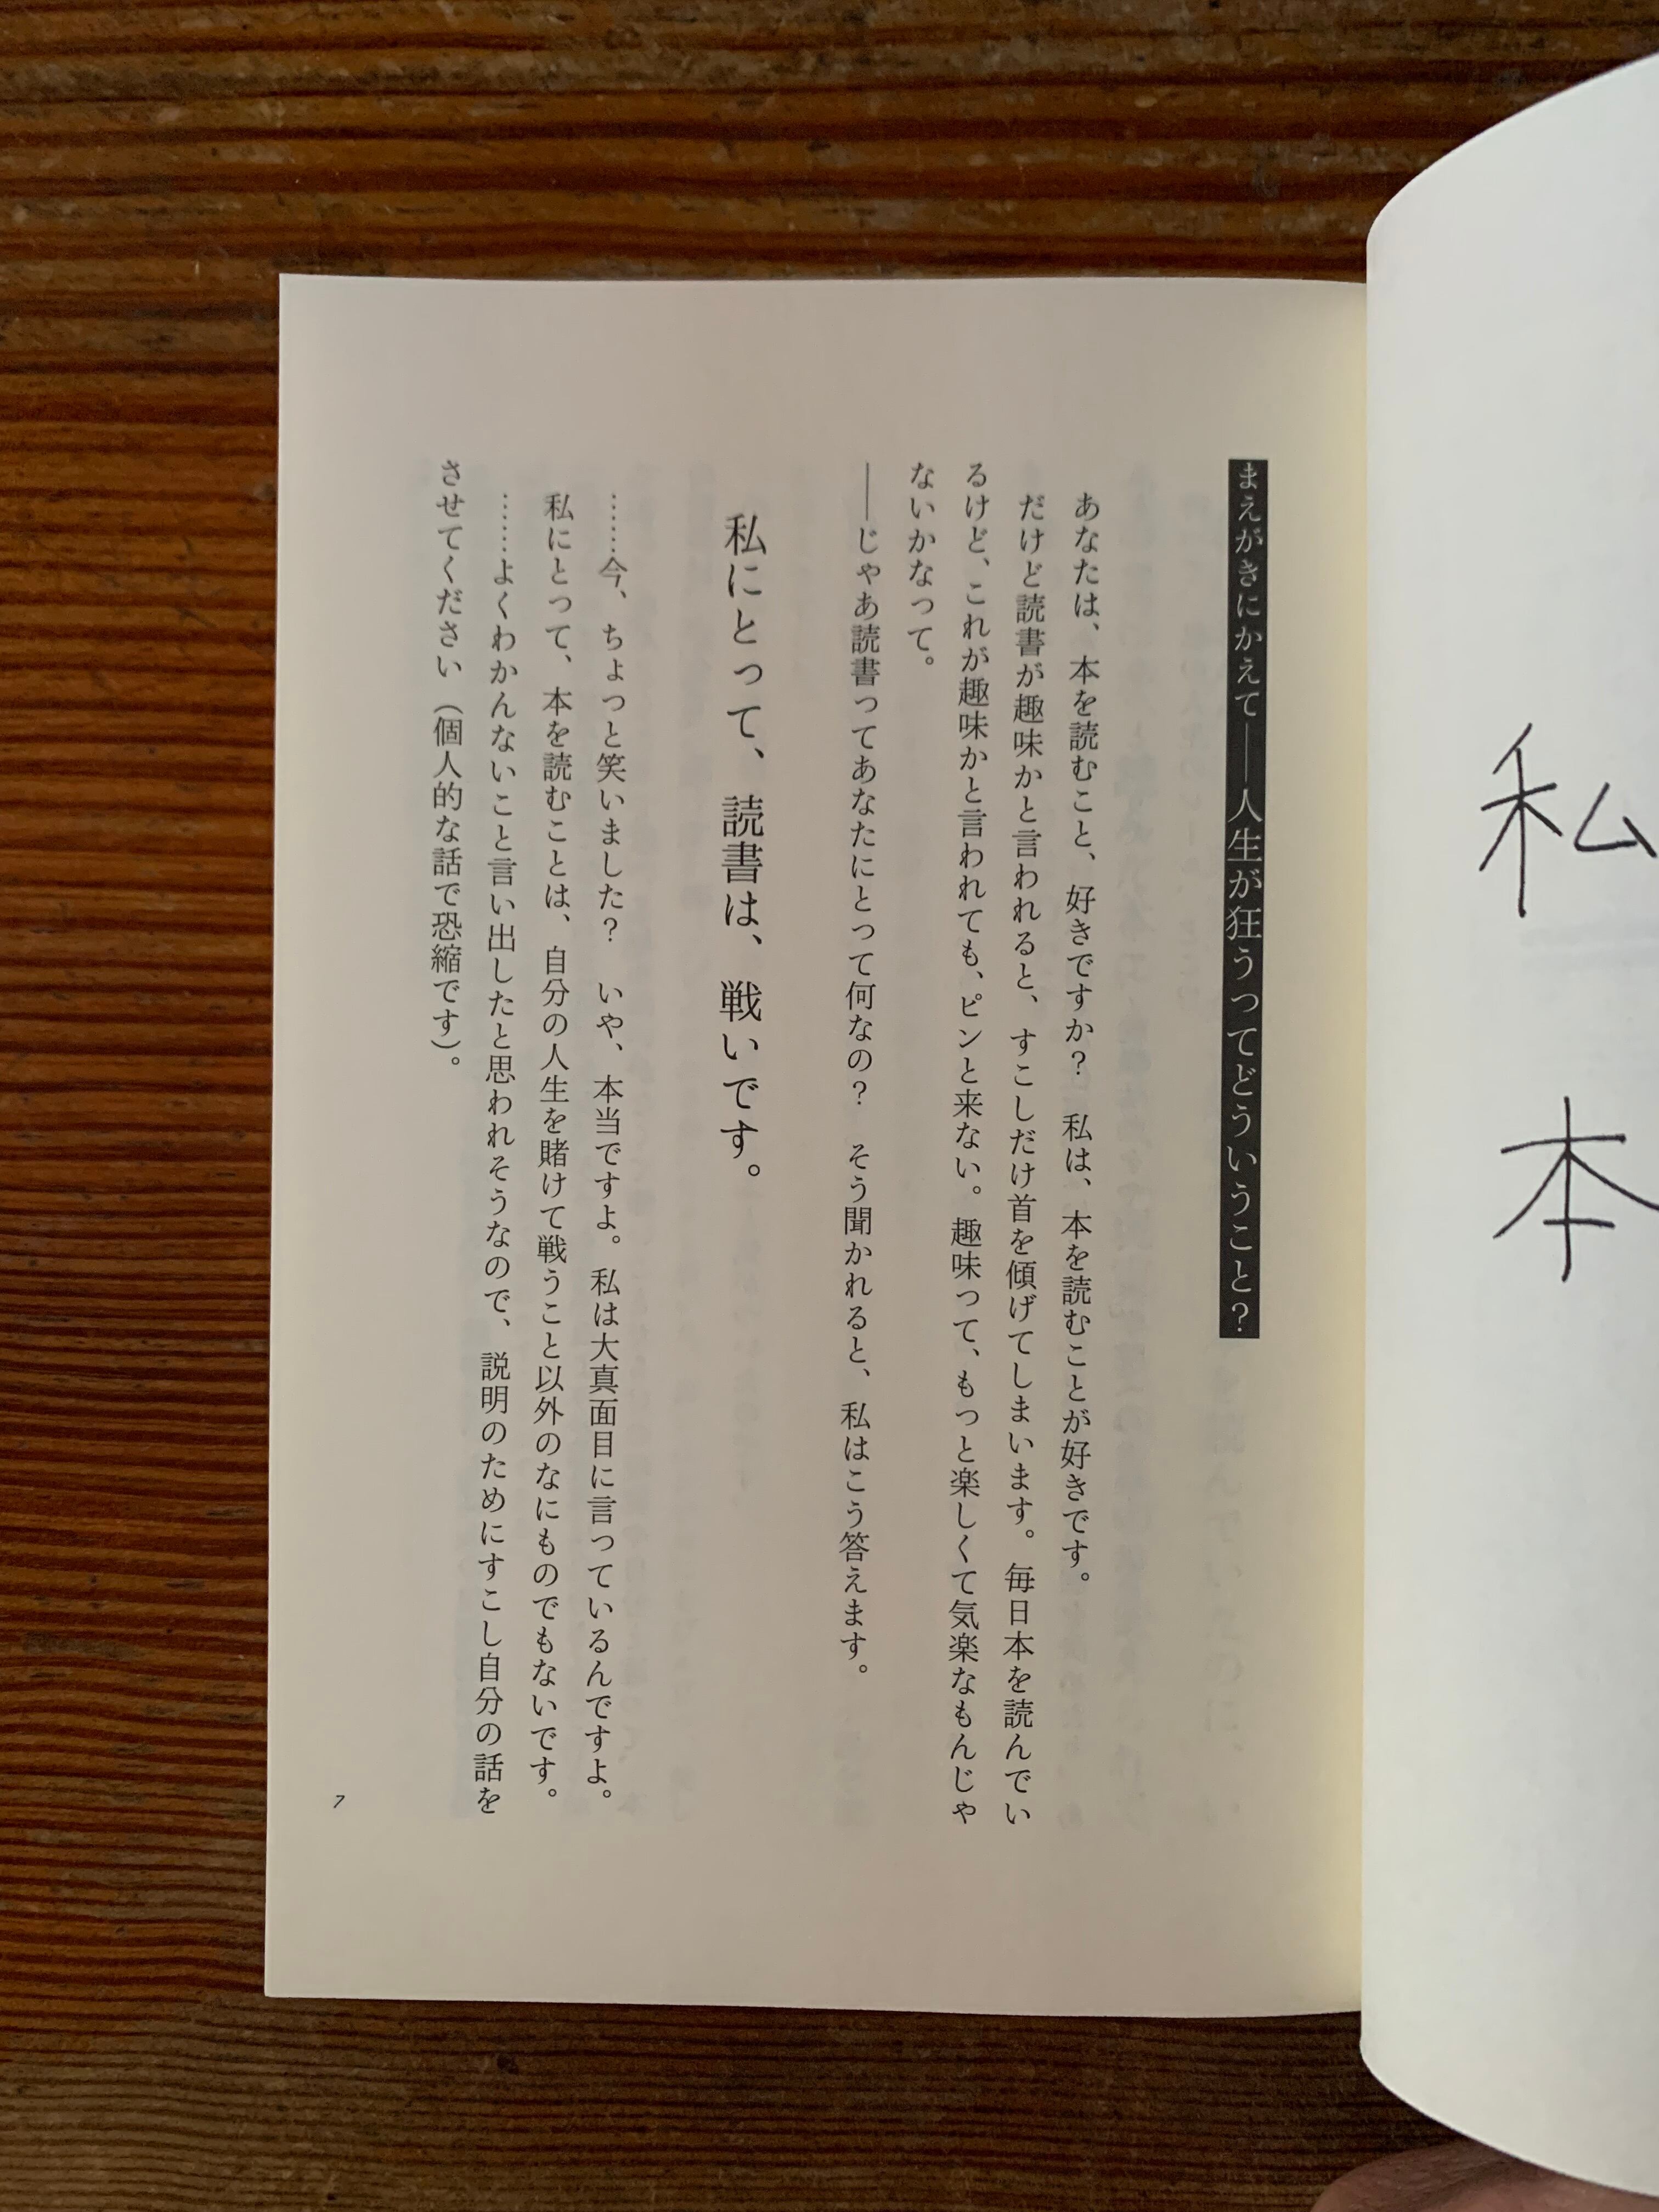 私
本
まえがきにかえて――人生が狂うってどういうこと？
あなたは、本を読むこと、好きですか？　私は、本を読むことが好きです。
だけど読書が趣味かと言われると、すこしだけ首を傾げてしまいます。毎日本を読んでい
るけど、これが趣味かと言われても、ピンと来ない。趣味って、もっと楽しくて気楽なもんじゃ
ないかなって。
――じゃあ読書ってあなたにとって何なの？　そう聞かれると、私はこう答えます。
私にとって、読書は、戦いです。
……今、ちょっと笑いました？　いや、本当ですよ。私は大真面目に言っているんですよ。
私にとって、本を読むことは、自分の人生を賭けて戦うこと以外のなにものでもないです。
……よくわかんないこと言い出したと思われそうなので、説明のためにすこし自分の話を
させてください（個人的な話で恐縮です）。
7